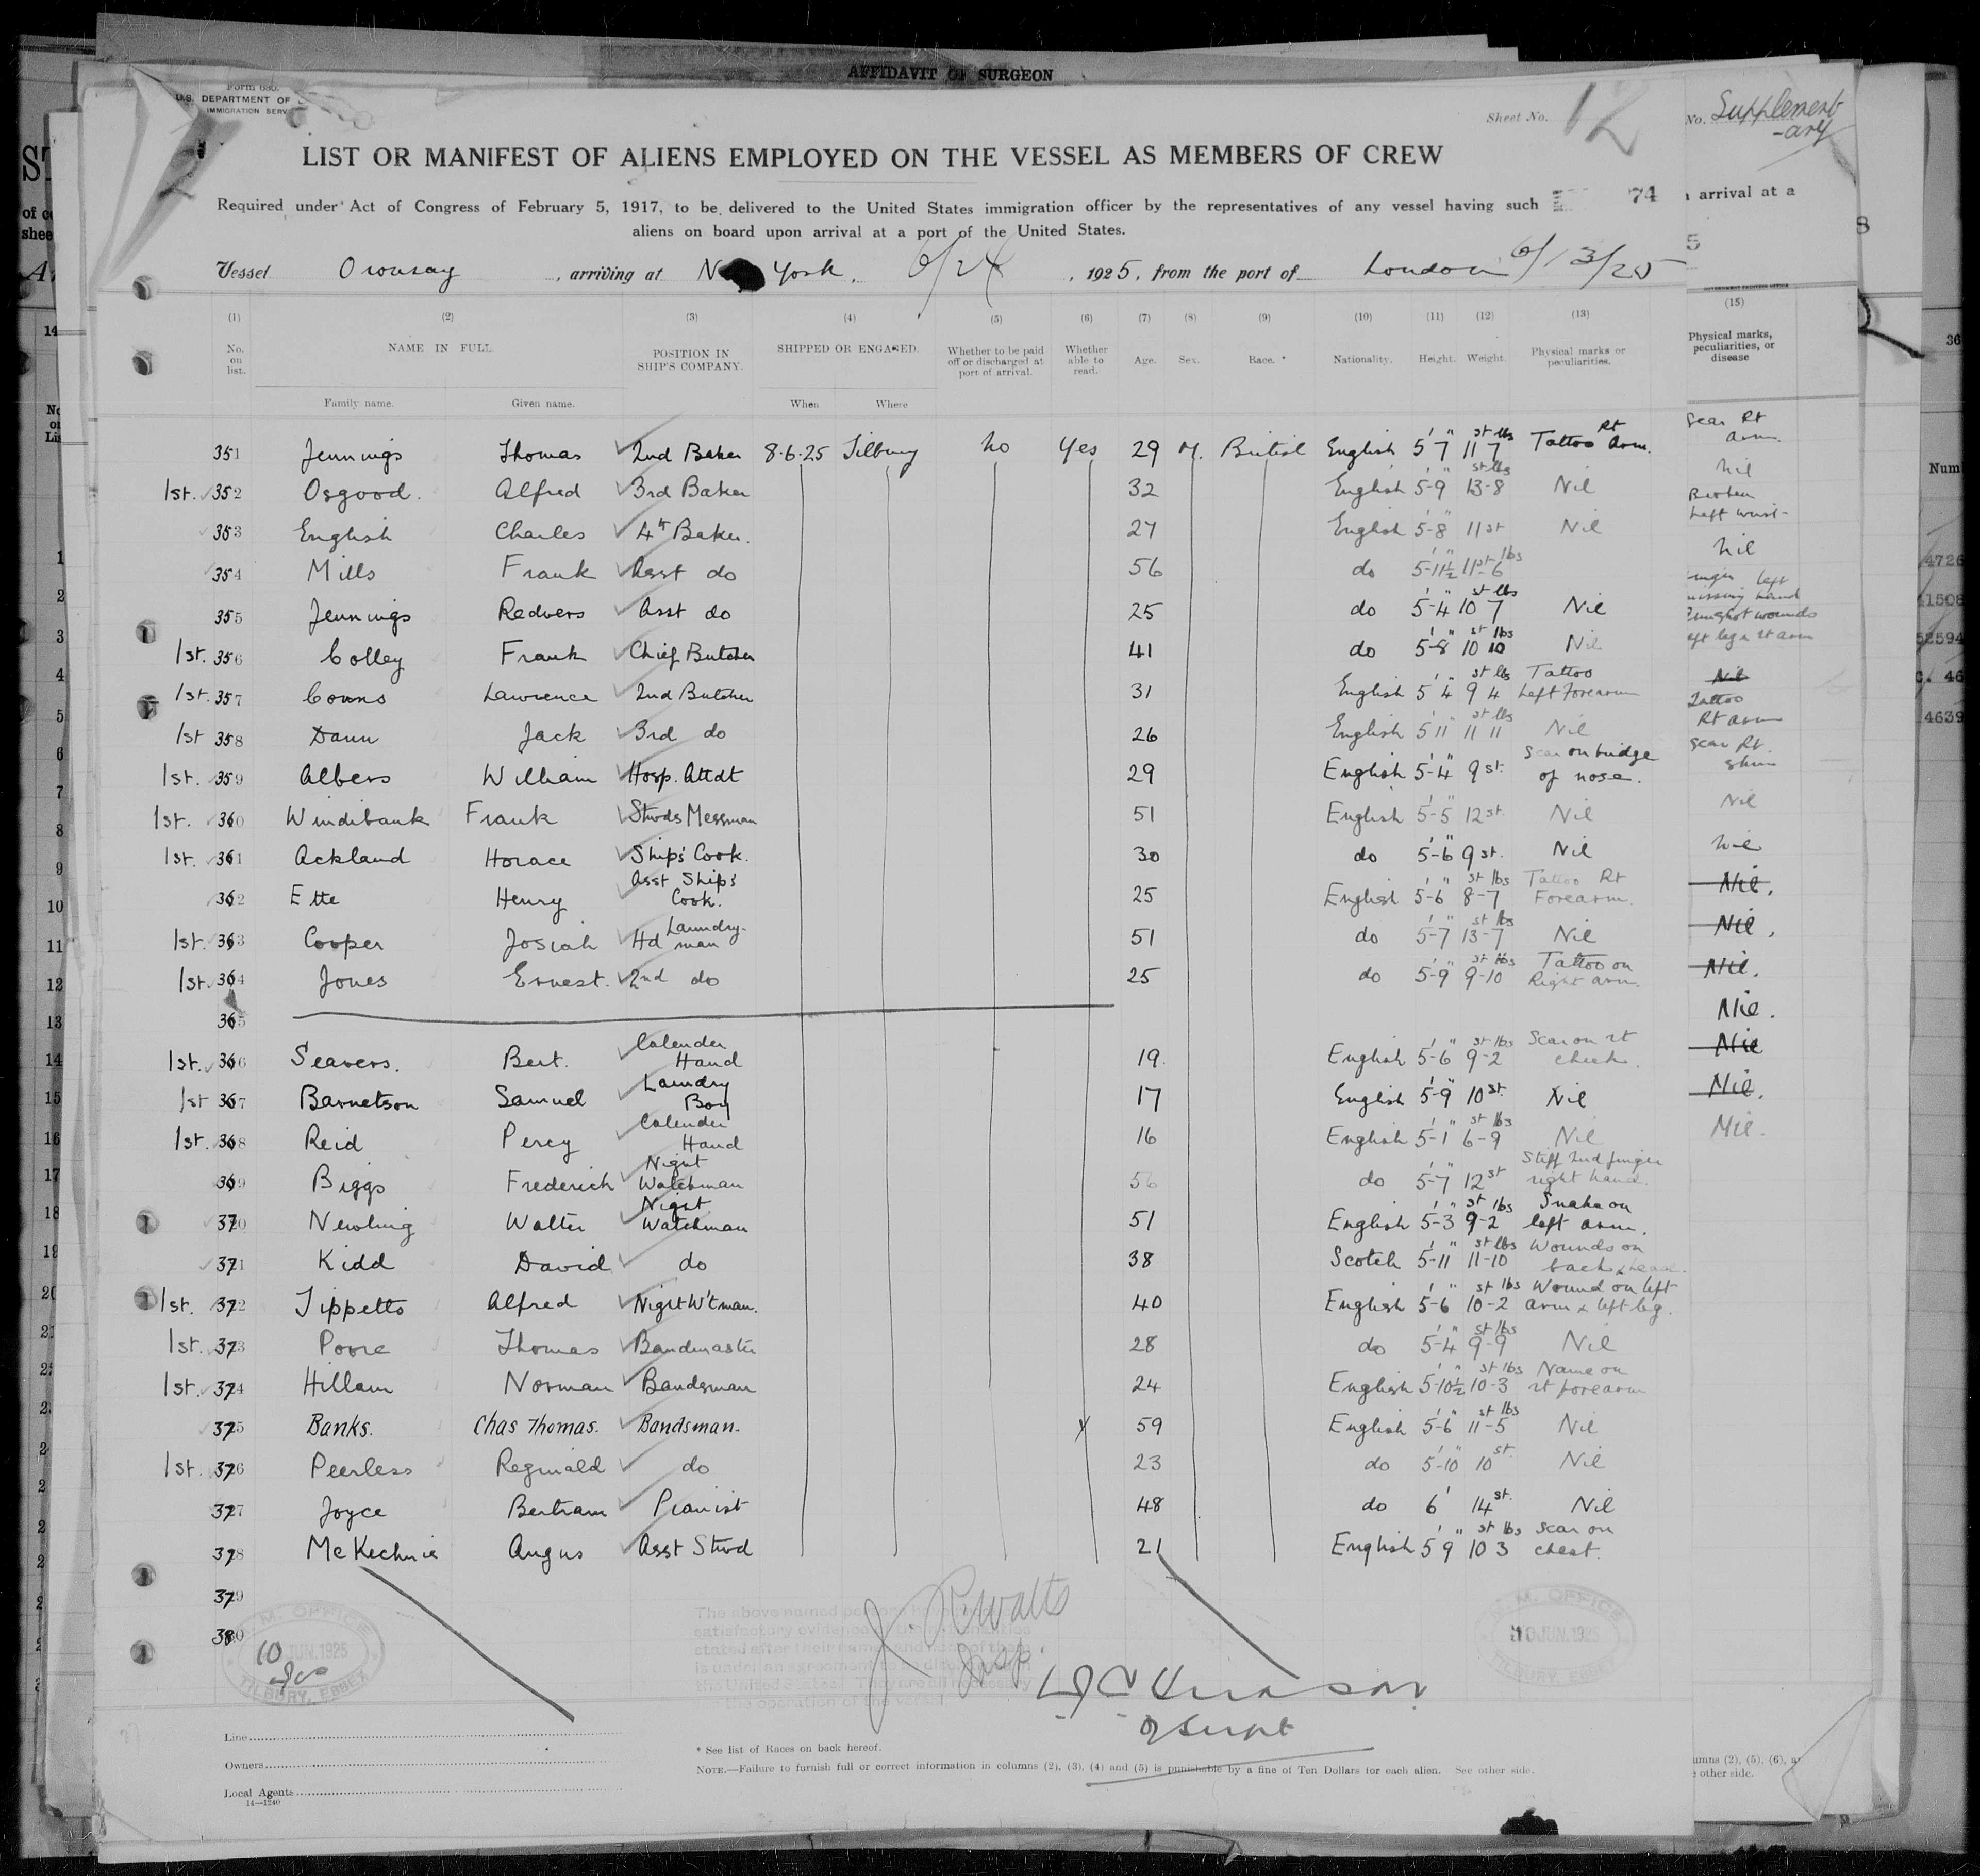 AFFIDAVIT OF SURGEON
Form 680.
U.S. DEPARTMENT OF
IMMIGRATION SERV
Sheet No. 12
No. Supplement-
-ary
LIST OR MANIFEST OF ALIENS EMPLOYED ON THE VESSEL AS MEMBERS OF CREW
Required under Act of Congress of February 5, 1917, to be delivered to the United States immigration officer by the representatives of any vessel having such
74
arrival at a
aliens on board upon arrival at a port of the United States.
Vessel Oronsay, arriving at New York, 6/24, 1925, from the port of London 6/13/25
(1) (2) (3) (4) (5) (6) (7) (8) (9) (10) (11) (12) (13) (15)
No. on list. NAME IN FULL Family name. Given name. POSITION IN SHIP'S COMPANY. SHIPPED OR ENGAGED. When Where Whether to be paid off or discharged at port of arrival. Whether able to read. Age. Sex. Race. * Nationality. Height. Weight. Physical marks or peculiarities. Physical marks, peculiarities, or disease
351 Jennings Thomas 2nd Baker 8.6.25 Tilbury No Yes 29 M. British English 5'7" 11 st 7 lbs Tattoo Rt Arm.
1st. 352 Osgood. Alfred 3rd Baker 32 English 5'-9" 13-8 st lbs Nil
353 English Charles 4th Baker. 27 English 5'-8" 11 st Nil
354 Mills Frank Asst do 56 do 5'-11½" 11 st-6 lbs
355 Jennings Redvers Asst do 25 do 5'-4" 10 st 7 lbs Nil
1st. 356 Colley Frank Chief Butcher 41 do 5'-8" 10 st 10 lbs Nil
1st. 357 Conns Lawrence 2nd Butcher 31 English 5'4" 9 st 4 lbs Tattoo Left Forearm
1st 358 Dann Jack 3rd do 26 English 5'11" 11 st 11 lbs Nil
1st. 359 Albers William Hosp. Attdt 29 English 5'-4" 9 st. Scar on bridge of nose.
1st. 360 Windibank Frank Stwds Messman 51 English 5'-5" 12 st. Nil
1st. 361 Ackland Horace Ship's Cook. 30 do 5'-6" 9 st. Nil
362 Ette Henry Asst Ship's Cook. 25 English 5'-6" 8-7 st lbs Tattoo Rt Forearm.
1st. 363 Cooper Josiah Hd Laundry-man 51 do 5'-7" 13-7 st lbs Nil
1st. 364 Jones Ernest. 2nd do 25 do 5'-9" 9-10 st lbs Tattoo on Right arm.
365
1st. 366 Seavers. Bert. Calender Hand 19. English 5'-6" 9-2 st lbs Scar on rt cheek.
1st 367 Barnetson Samuel Laundry Boy 17 English 5'-9" 10 st. Nil
1st. 368 Reid Percy Calender Hand 16 English 5'-1" 6-9 st lbs Nil
369 Biggs Frederick Night Watchman 56 do 5'-7" 12 st Stiff 2nd finger right hand.
370 Newling Walter Night Watchman 51 English 5'-3" 9-2 st lbs Snake on left arm.
371 Kidd David do 38 Scotch 5'-11" 11-10 st lbs Wounds on back & head.
1st. 372 Tippetts Alfred Night W'tman. 40 English 5'-6" 10-2 st lbs Wound on left arm & left leg.
1st. 373 Poore Thomas Bandmaster 28 do 5'-4" 9-9 st lbs Nil
1st. 374 Hillam Norman Bandsman 24 English 5'-10½" 10-3 st lbs Name on rt forearm
375 Banks. Chas Thomas. Bandsman. 59 English 5'-6" 11-5 st lbs Nil
1st. 376 Peerless Reginald do 23 do 5'-10" 10 st. Nil
377 Joyce Bertram Pianist 48 do 6' 14 st. Nil
378 McKechnie Angus Asst Stwd 21 English 5'9" 10 3 st lbs Scar on chest.
379
380
Scar Rt
arm.
Nil
Broken
Left wrist-
Nil
left
missing hand
Gunshot wounds
left leg & rt arm
Nil
Tattoo
Rt arm
Scar Rt.
shin
Nil
Nil
Nil.
Nil.
Nil.
Nil.
Nil
Nil.
Nil.
M.M. OFFICE
10 JUN.1925
TILBURY, ESSEX
The above named persons
satisfactory evidence
stated after their names and none of them
is under an agreement to be discharged in
the United States. They are all necessary
the operation of the vessel
M.M. OFFICE
10 JUN.1925
TILBURY, ESSEX
Line
Owners
Local Agents
14—1240
* See list of Races on back hereof.
NOTE.—Failure to furnish full or correct information in columns (2), (3), (4) and (5) is punishable by a fine of Ten Dollars for each alien. See other side.
umns (2), (5), (6), a
other side.